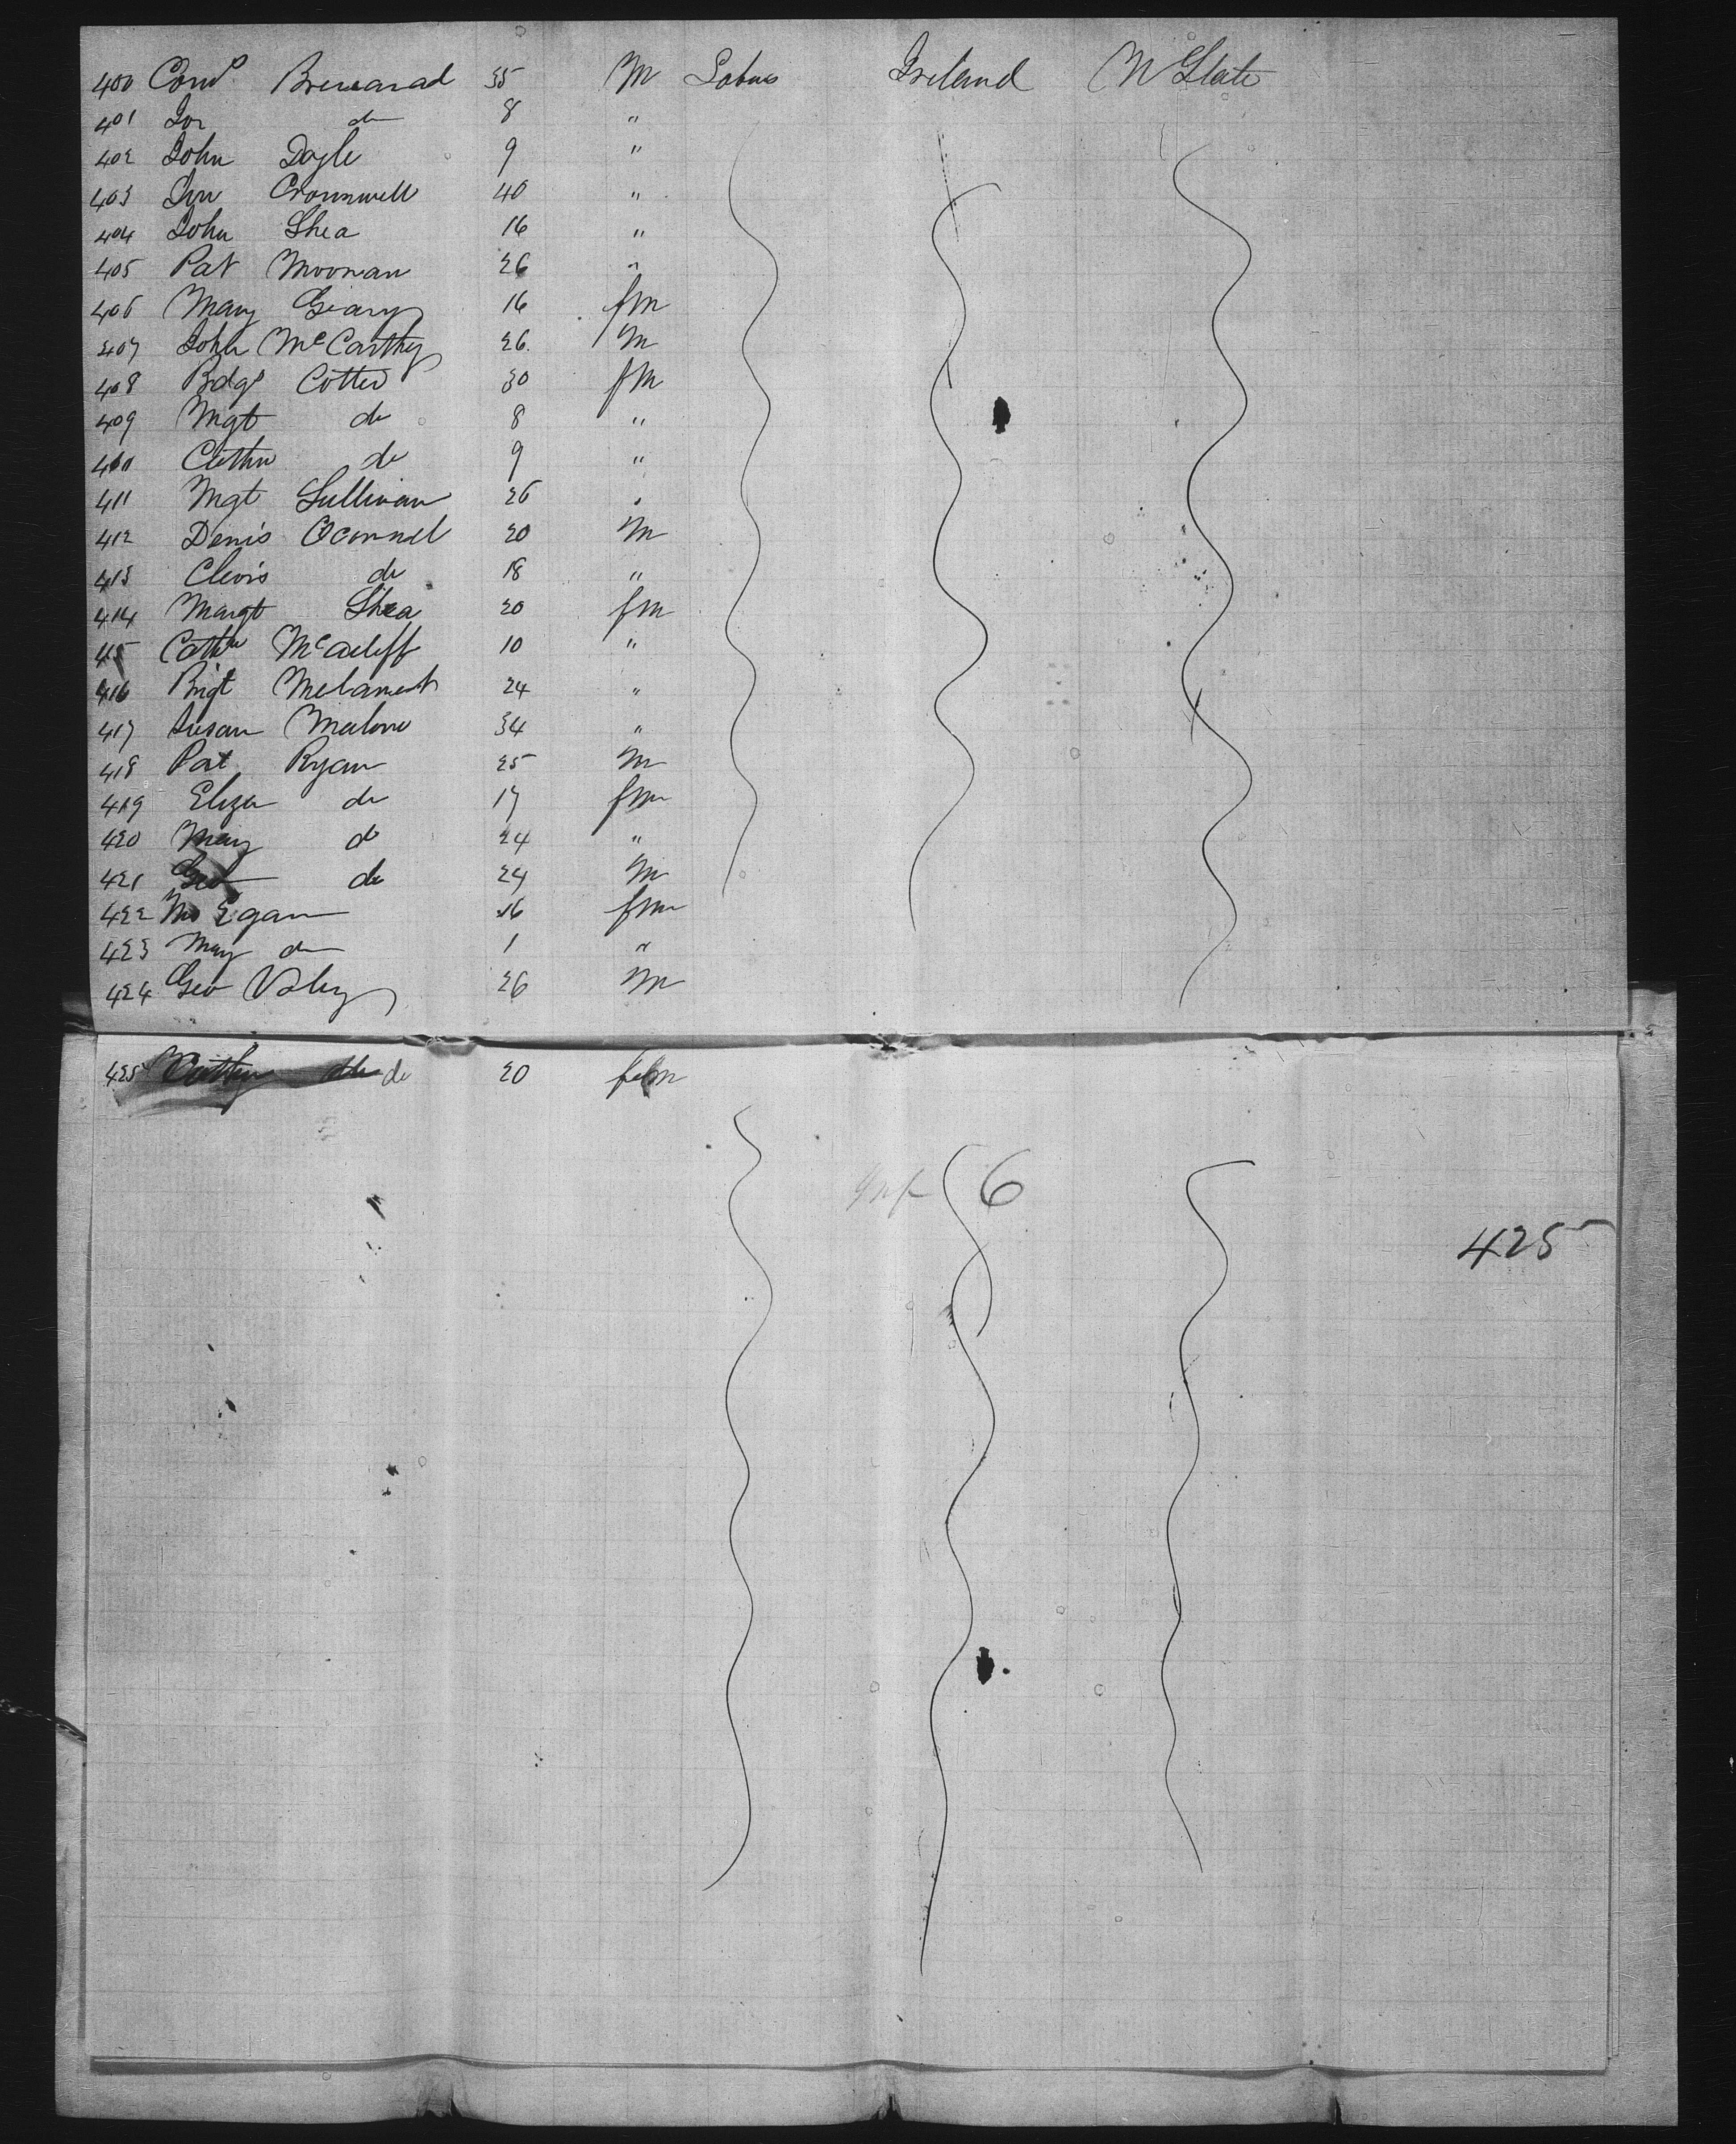 400 Corn Brewarad 35 M Labus Ireland U State
401 Jno do 8 "
402 John Doyle 9 "
403 Jno Cromwell 40 "
404 John Shea 16 "
405 Pat Moonan 26 "
406 Mary Geary 16 fm
407 John McCarthy 26 M
408 Bdgt Cotter 30 fm
409 Mgt do 8 "
410 Cathn do 9 "
411 Mgt Sullivan 26 "
412 Denis Oconnel 20 M
413 do 18 "
414 Margt Shea 20 fm
415 Cathn McAuliff 10 "
416 Brigt 24 "
417 Susan Malone 34 "
418 Pat Ryan 25 M
419 Eliza do 17 fm
420 Mary do 24 "
421 Geo do 24 M
422 Mrs Egan 26 fm
423 Mary do 1 "
424 Geo 26 M
425 do 20 fem
Inf 6
425